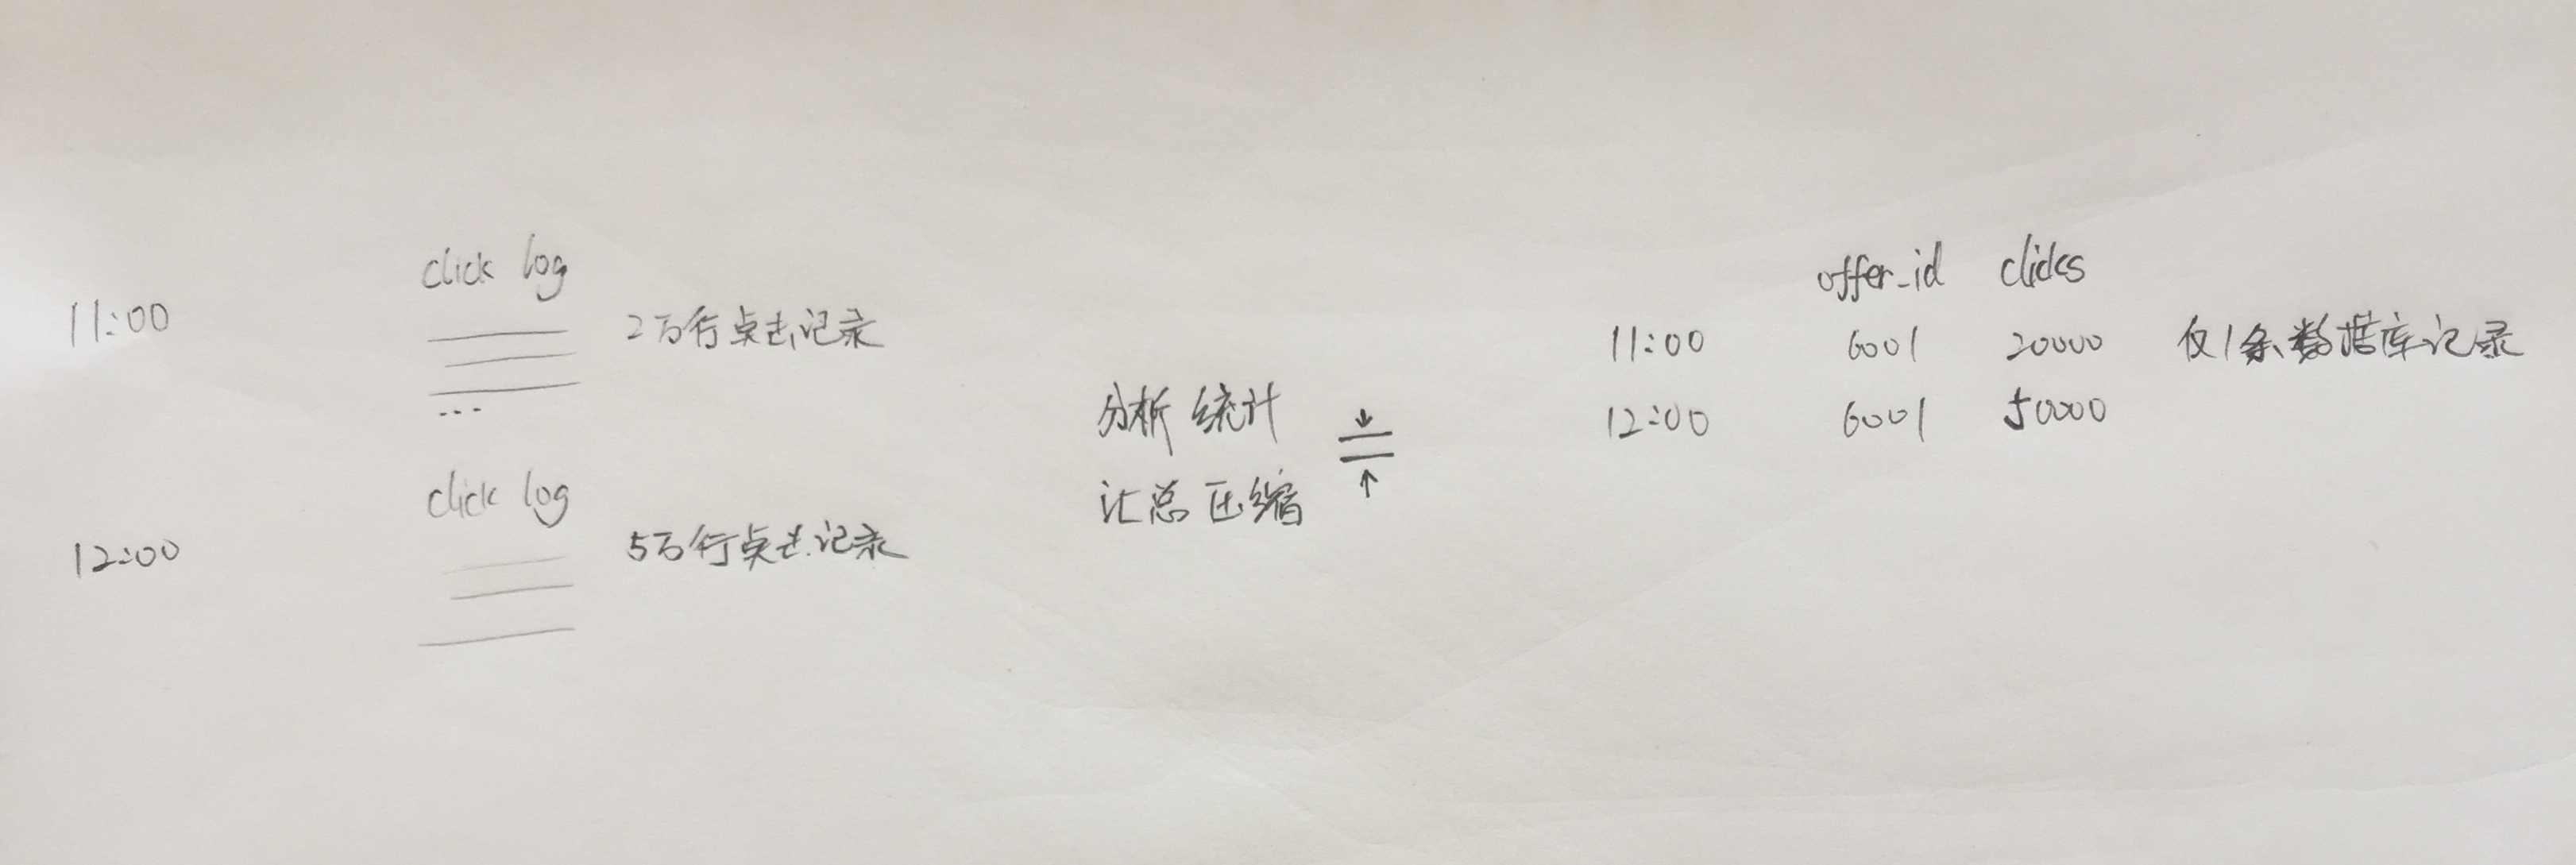 click log
11:00 2万行点击记录
...
click log
12:00 5万行点击记录
分析 统计
汇总 压缩
offer_id clicks
11:00 6001 20000 仅1条数据库记录
12:00 6001 50000